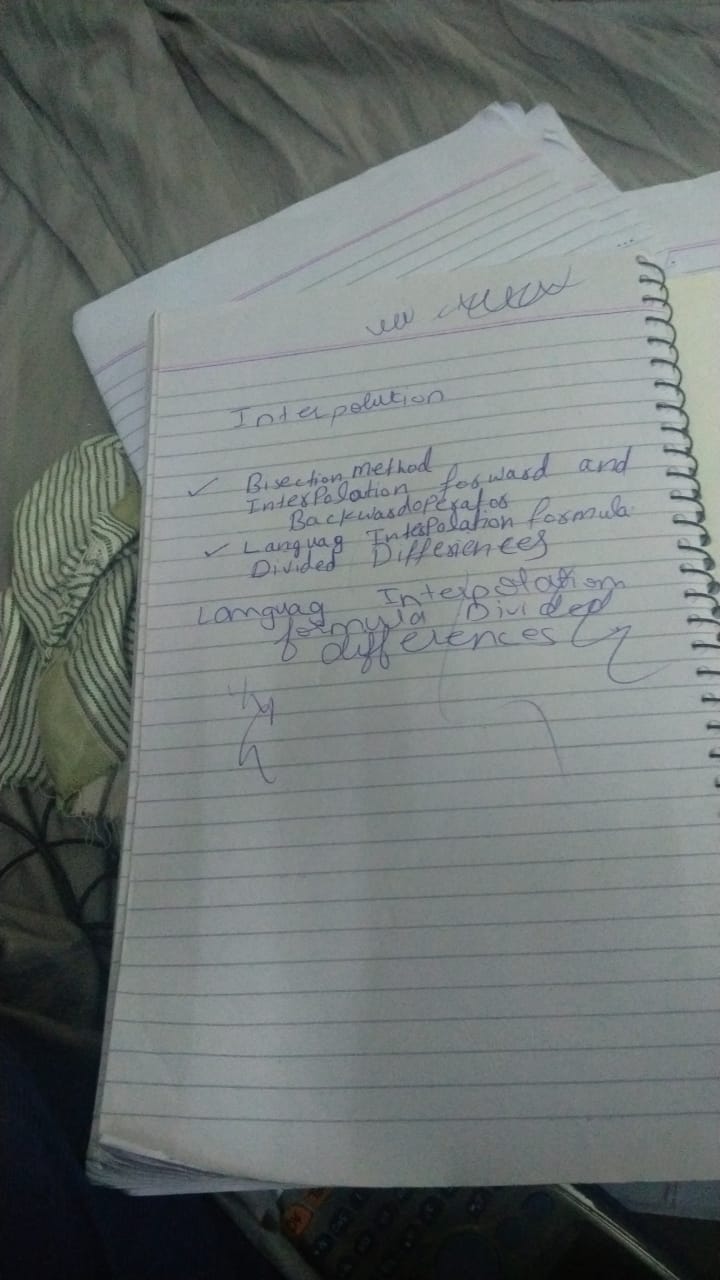 Interpolution
Bisection method
InterPalation forward and
Backwardoperator
Languag InterPalation formula
Divided Differences
Languag Interpolation
formula Divided
differences